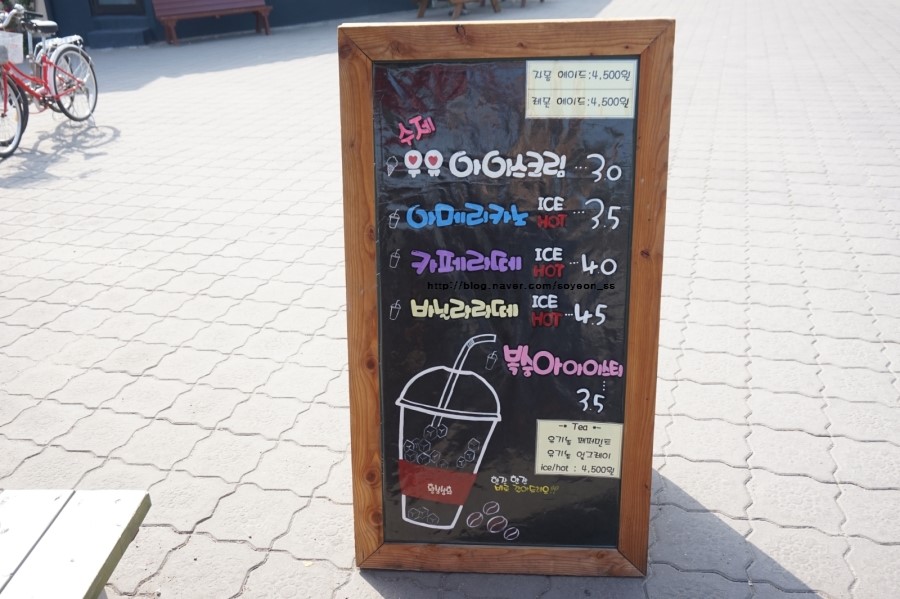 자몽 에이드:4,500원
레몬 에이드:4,500원
수제
우유 아이스크림 ...3.0
아메리카노 ICE HOT ...3.5
카페라떼 ICE HOT ...4.0
http://blog.naver.com/soyeon_ss
바닐라라떼 ICE HOT ...4.5
복숭아아이스티
...3.5
→ Tea ←
유기농 페퍼민트
유기농 얼그레이
ice/hot : 4,500원